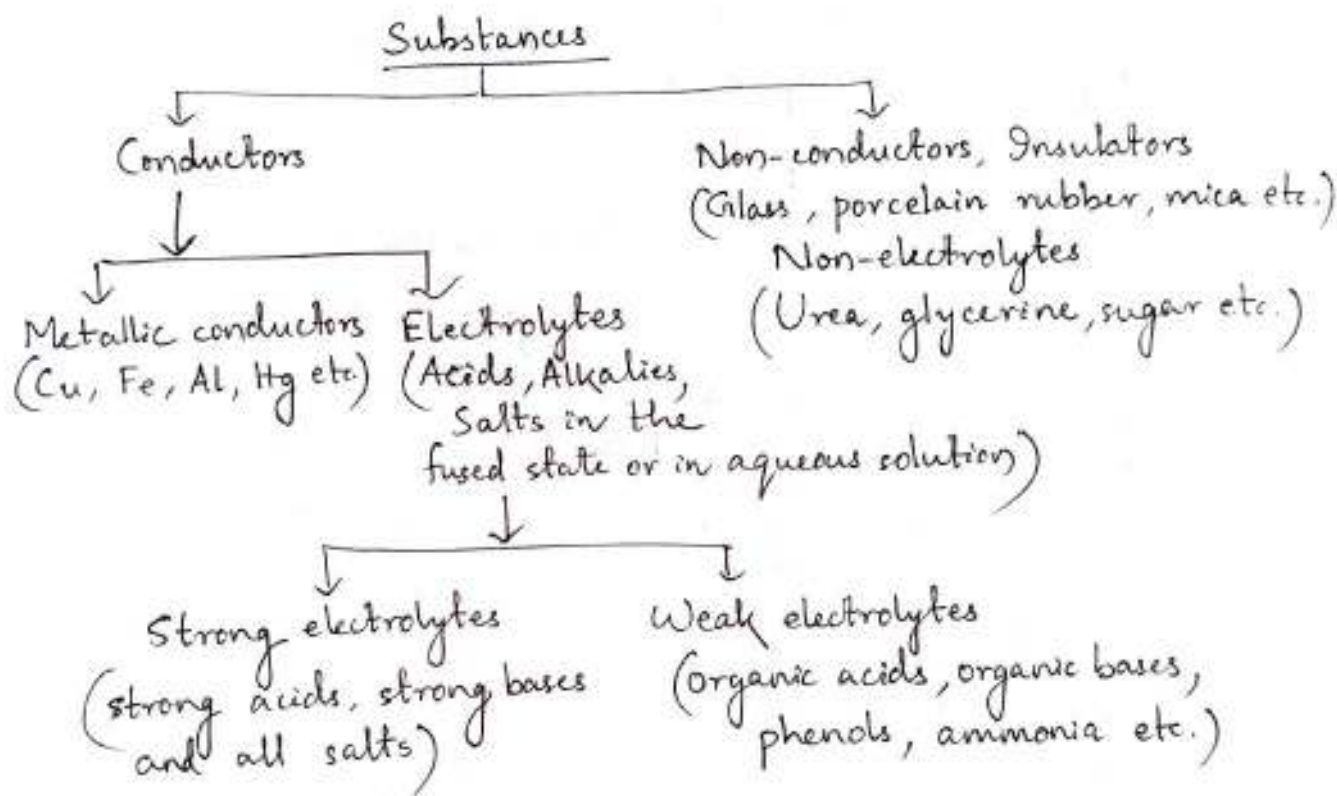 Substances
Conductors
Non-conductors, Insulators
(Glass, porcelain rubber, mica etc.)
Non-electrolytes
(Urea, glycerine, sugar etc.)
Metallic conductors
(Cu, Fe, Al, Hg etc)
Electrolytes
(Acids, Alkalies,
Salts in the
fused state or in aqueous solution)
Strong electrolytes
(strong acids, strong bases
and all salts)
Weak electrolytes
(organic acids, organic bases,
phenols, ammonia etc.)